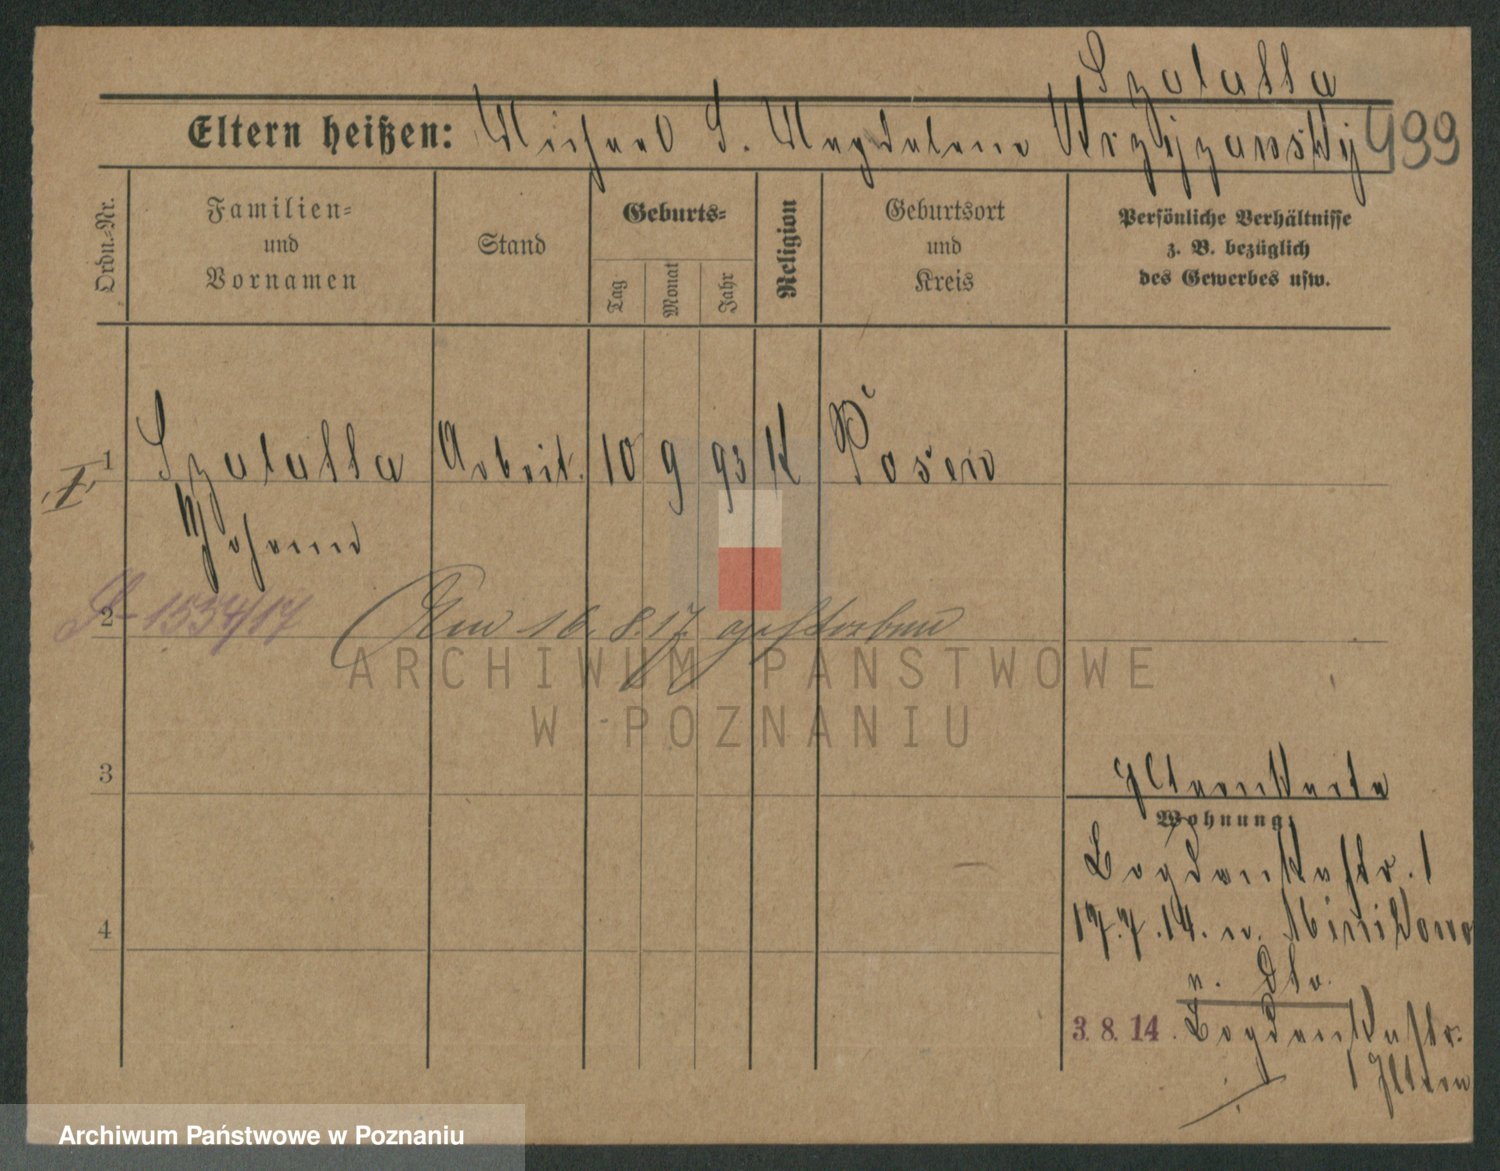 Szalatta
Eltern heißen: Michael S. Magdalena Krzyzansky 499
Ordn.-Nr.
Familien-
und
Vornamen
Stand
Geburts-
Tag
Monat
Jahr
Religion
Geburtsort
und
Kreis
Persönliche Verhältnisse
z. B. bezüglich
des Gewerbes usw.
1 Szalatta Arbeit. 10 9 93 K Posen
Johann
2
S-1534/17
Am 16.8.17. gestorben
ARCHIWUM PAŃSTWOWE
W POZNANIU
3
Elternkarte
Wohnung:
Bogdankastr. 1
4
17.7.14. n. Minikowo
n. Dto.
3. 8. 14. Bogdankastr.
1 Eltern
Archiwum Państwowe w Poznaniu